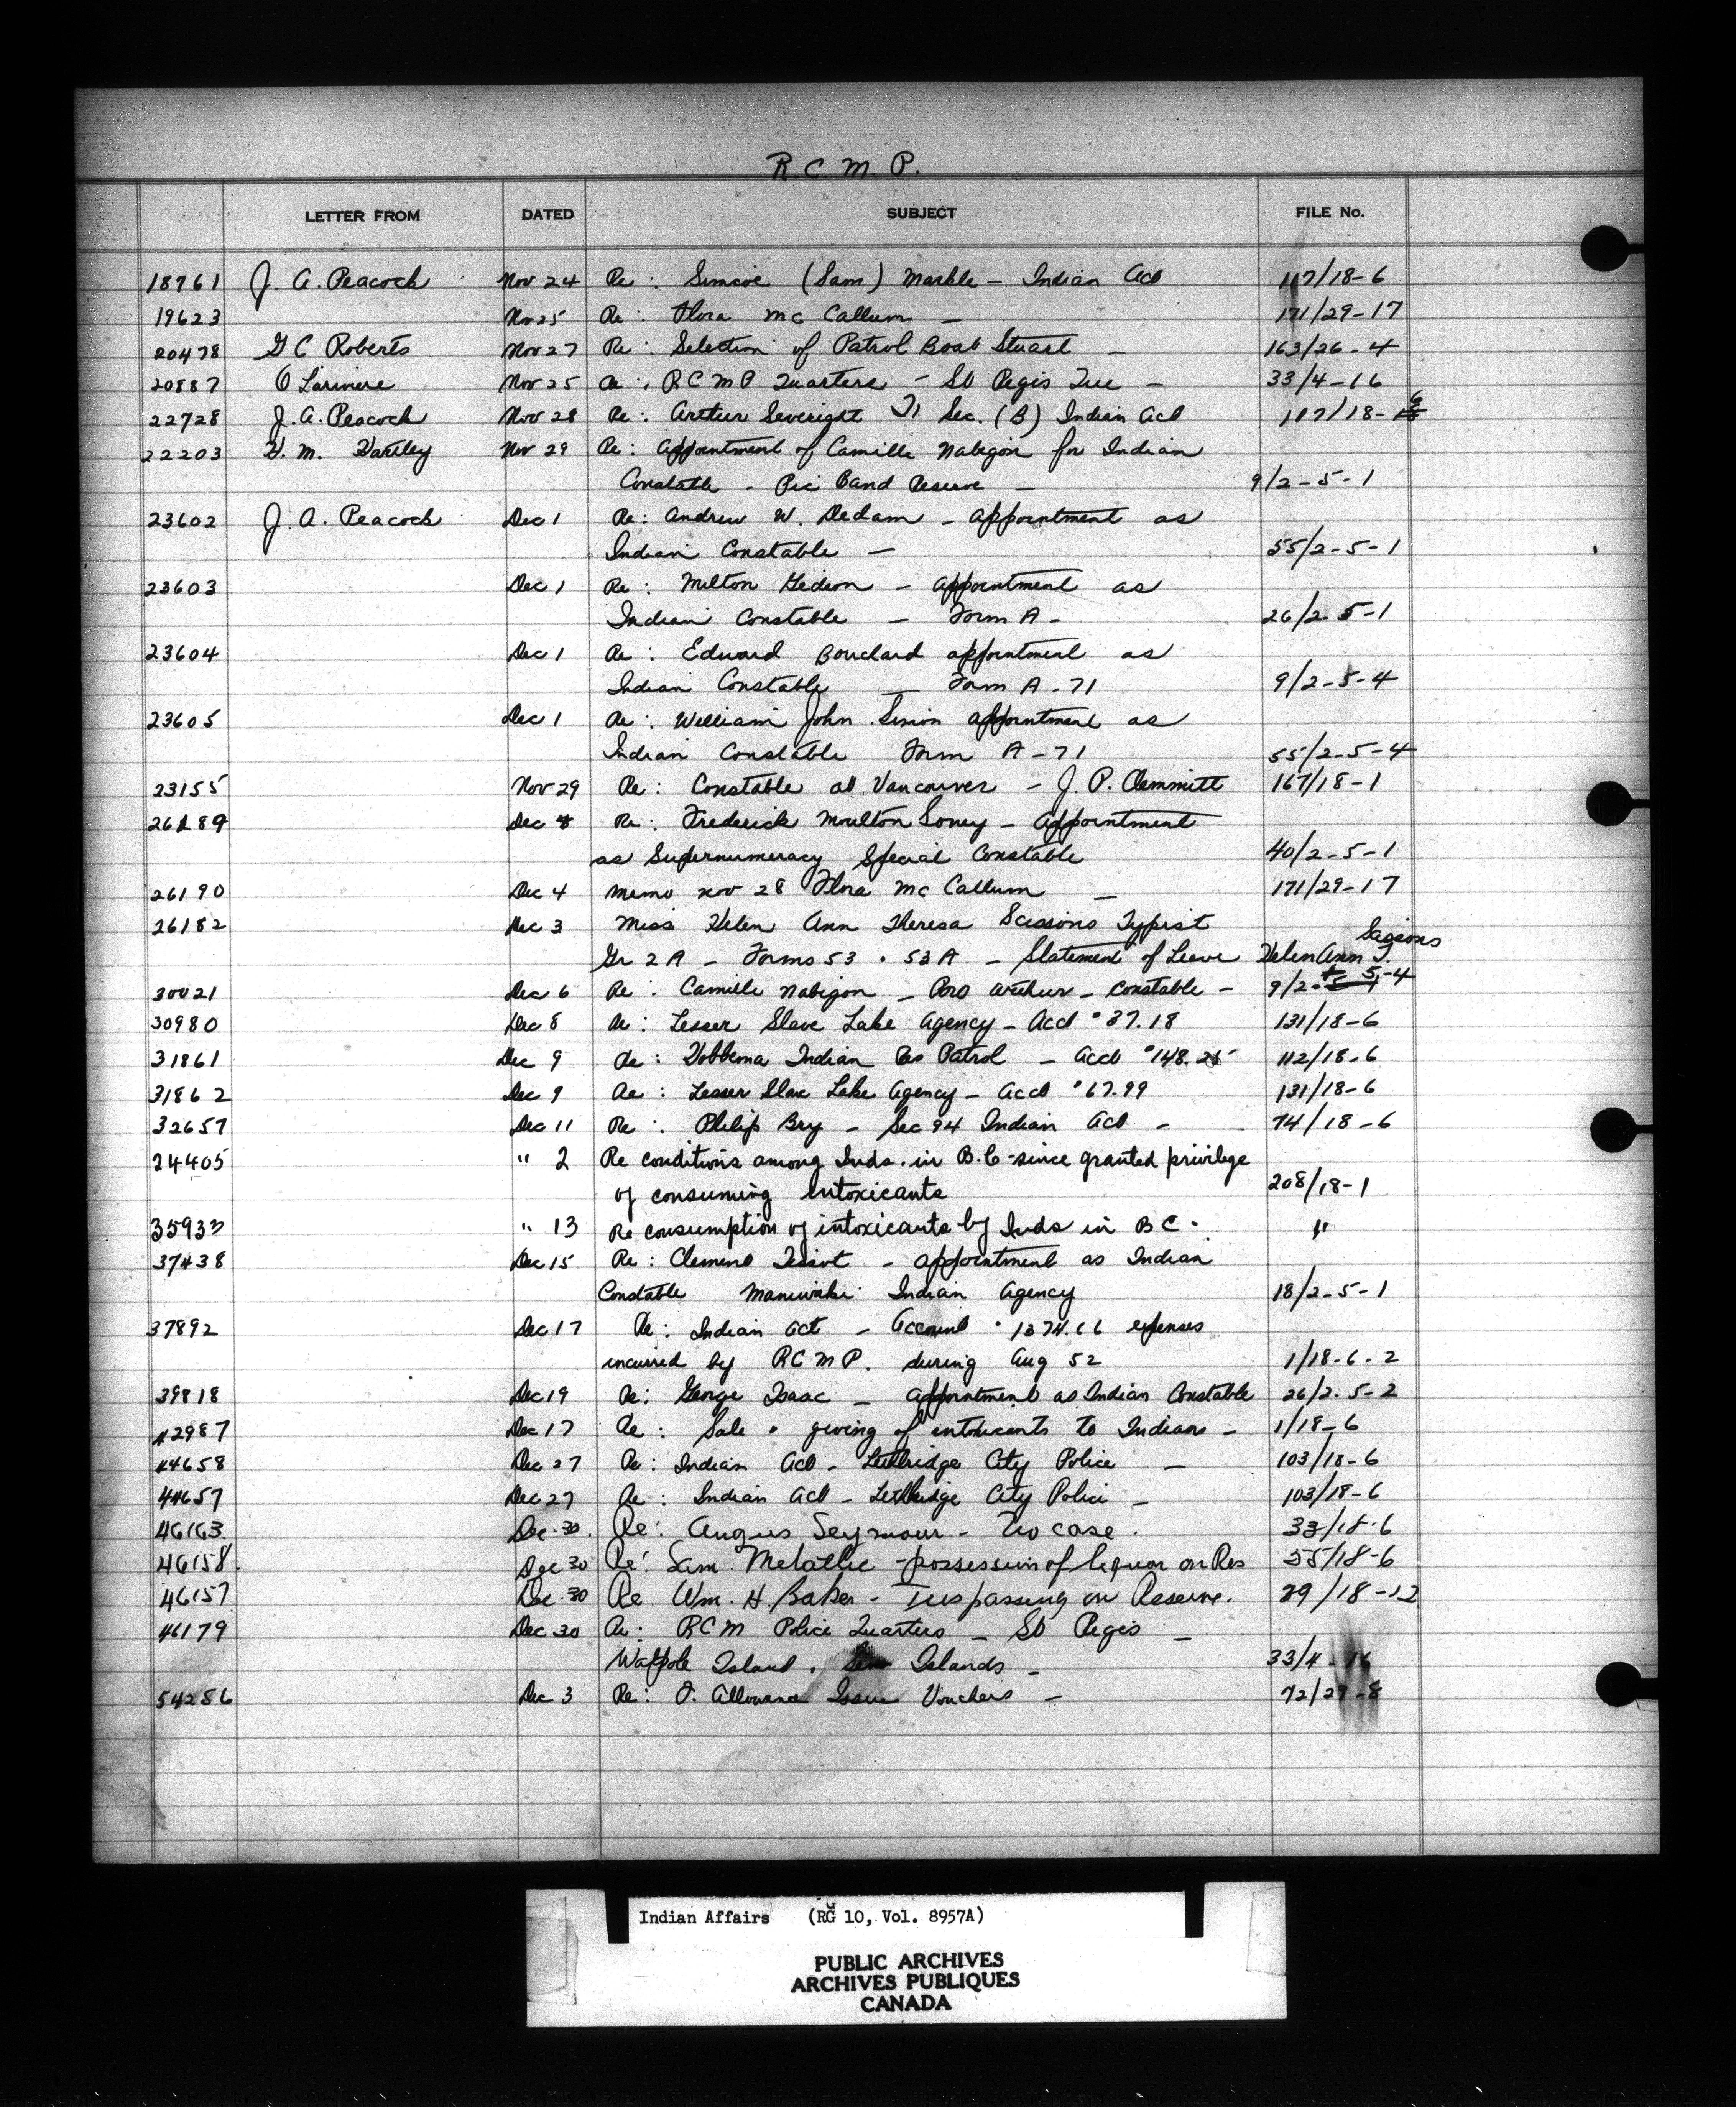 R. C. M. P.
LETTER FROM DATED SUBJECT FILE No.
18761 J. A. Peacock Nov 24 Re: Simcoe (Sam) Markle - Indian Act 117/18-6
19623 Nov 25 Re: Flora Mc Callum - 171/29-17
20478 G C Roberts Nov 27 Re: Selection of Patrol Boat Stuart - 163/26-4
20887 O Lariviere Nov 25 Re: R C M P Quarters - St Regis Que - 33/4-16
22728 J. A. Peacock Nov 28 Re: Arthur Severight Sec. (B) Indian Act 117/18-6
22203 H. M. Hartley Nov 29 Re: Appointment of Camille Nabigon for Indian
Constable - Pic Band Reserve - 9/2-5-1
23602 J. A. Peacock Dec 1 Re: Andrew W. Dedam - appointment as
Indian Constable - 55/2-5-1
23603 Dec 1 Re: Milton Gedeon - appointment as
Indian Constable - Form A - 26/2-5-1
23604 Dec 1 Re: Edward Bouchard appointment as
Indian Constable - Form A-71 9/2-5-4
23605 Dec 1 Re: William John Simon appointment as
Indian Constable Form A-71 55/2-5-4
23155 Nov 29 Re: Constable at Vancouver - J. P. Clemmitt 167/18-1
26189 Dec 8 Re: Frederick Moulton Soney - Appointment
as Supernumeracy Special Constable 40/2-5-1
26190 Dec 4 memo nov 28 Flora Mc Callum - 171/29-17
26182 Dec 3 Miss Helen Ann Theresa Scissons Typist
Gr 2 A - Forms 53 . 53A - Statement of Leave Helen Ann T.
30021 Dec 6 Re: Camille Nabigon - Port Arthur - Constable - 9/2-5-4
30980 Dec 8 Re: Lesser Slave Lake Agency - Acct $37.18 131/18-6
31861 Dec 9 Re: Hobbema Indian Res Patrol - Acct $148.25 112/18-6
31862 Dec 9 Re: Lesser Slave Lake Agency - Acct $67.99 131/18-6
32657 Dec 11 Re: Philip Bry - Sec 94 Indian Act - 74/18-6
24405 " 2 Re conditions among Inds. in B.C - since granted privilege
of consuming intoxicants 208/18-1
35933 " 13 Re consumption of intoxicants by Inds in B C. "
37438 Dec 15 Re: Clement Tessot - appointment as Indian
Constable Maniwaki Indian Agency 18/2-5-1
37892 Dec 17 Re: Indian Act - Account $1374.66 expenses
incurred by R C M P. during Aug 52 1/18-6-2
39818 Dec 19 Re: George Isaac - appointment as Indian Constable 26/2-5-2
42987 Dec 17 Re: Sale . giving of intoxicants to Indians - 1/18-6
44658 Dec 27 Re: Indian Act - Lethbridge City Police - 103/18-6
44657 Dec 27 Re: Indian Act - Lethbridge City Police - 103/18-6
46163 Dec. 30. Re: Angus Seymour - case. 33/18-6
46158 Dec 30 Re: Sam. Metallic - possession of liquor on Res 55/18-6
46157 Dec. 30 Re Wm. H. Baker - Trespassing on Reserve. 29/18-12
46179 Dec 30 Re: R C M Police Quarters - St Regis -
Walpole Island . Islands - 33/4-16
54286 Dec 3 Re: F. Allowance Issue Vouchers - 72/29-8
Indian Affairs (RG 10, Vol. 8957A)
PUBLIC ARCHIVES
ARCHIVES PUBLIQUES
CANADA